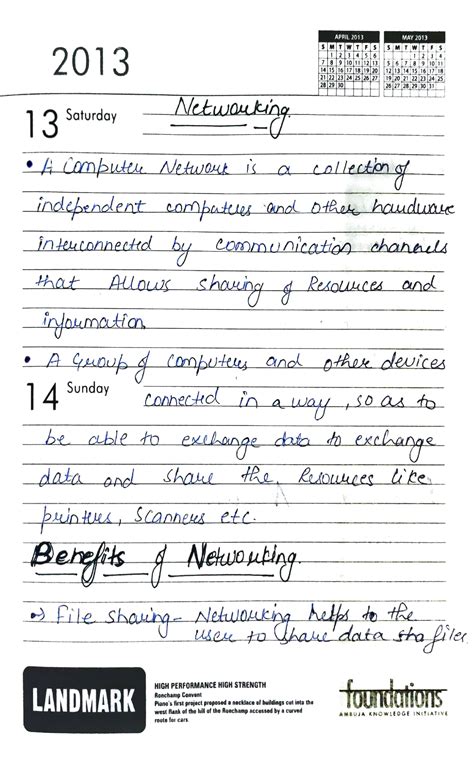 2013
APRIL 2013
S M T W T F S
1 2 3 4 5 6
7 8 9 10 11 12 13
14 15 16 17 18 19 20
21 22 23 24 25 26 27
28 29 30
MAY 2013
S M T W T F S
1 2 3 4
5 6 7 8 9 10 11
12 13 14 15 16 17 18
19 20 21 22 23 24 25
26 27 28 29 30 31
13 Saturday
Networking
• A Computer Network is a collection of
independent computers and other hardware
interconnected by communication channels
that Allows sharing of Resources and
information.
• A Group of computers and other devices
14 Sunday
connected in a way, so as to
be able to exchange data to exchange
data and share the Resources like
printers, Scanners etc.
Benefits of Networking.
→ File sharing- Networking helps to the
user to share data files
LANDMARK
HIGH PERFORMANCE HIGH STRENGTH
Ronchamp Convent
Piano's first project proposed a necklace of buildings cut into the
west flank of the hill of the Ronchamp accessed by a curved
route for cars
foundations
AMBUJA KNOWLEDGE INITIATIVE